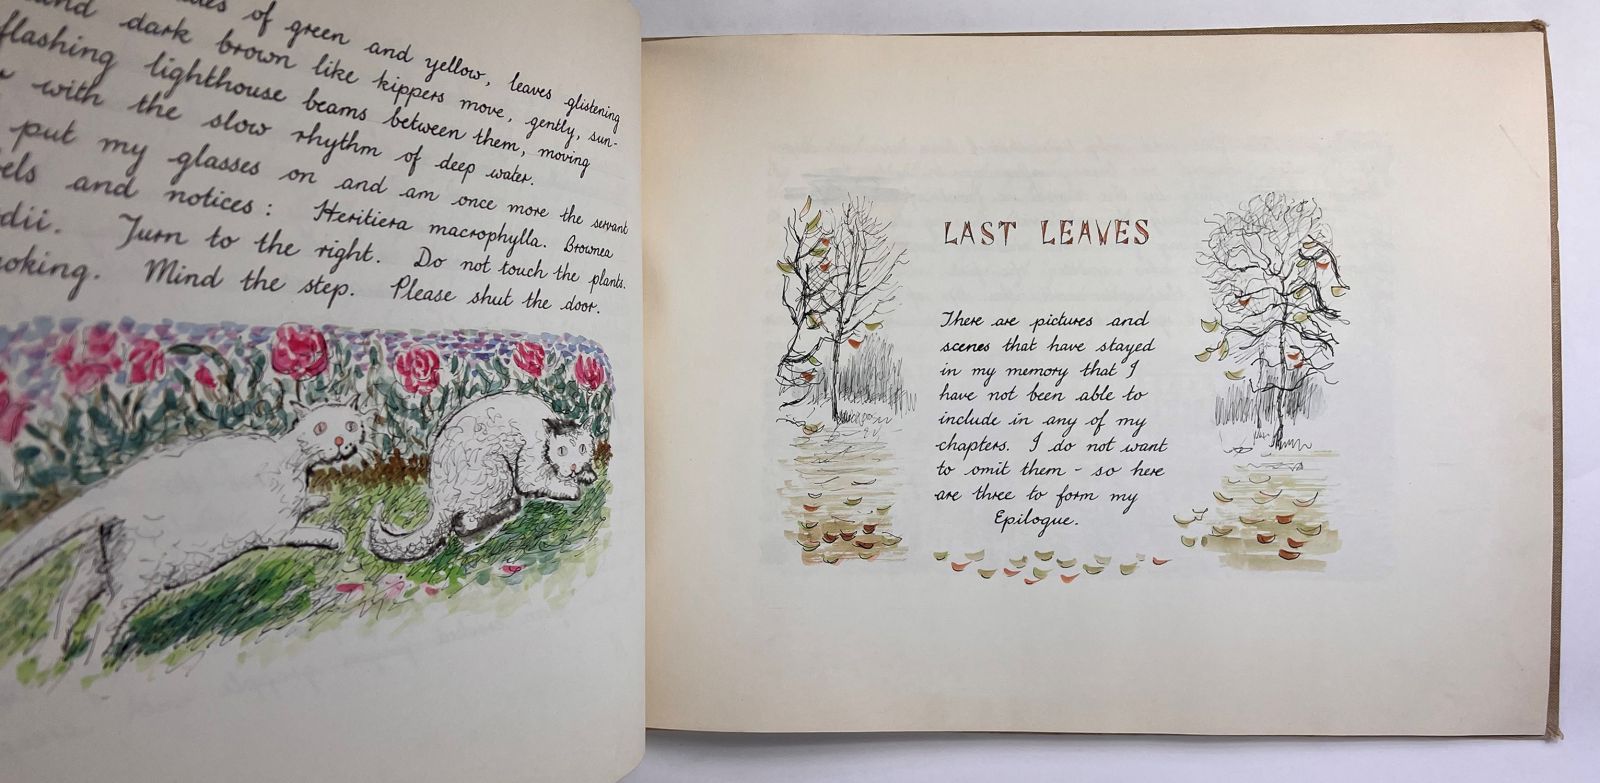 of green and yellow, leaves glistening
and dark brown like kippers move, gently, sun-
flashing lighthouse beams between them, moving
with the slow rhythm of deep water.
put my glasses on and am once more the servant
and notices: Heritiera macrophylla. Brownea
Turn to the right. Do not touch the plants.
Mind the step. Please shut the door.
LAST LEAVES
There are pictures and
scenes that have stayed
in my memory that I
have not been able to
include in any of my
chapters. I do not want
to omit them - so here
are three to form my
Epilogue.